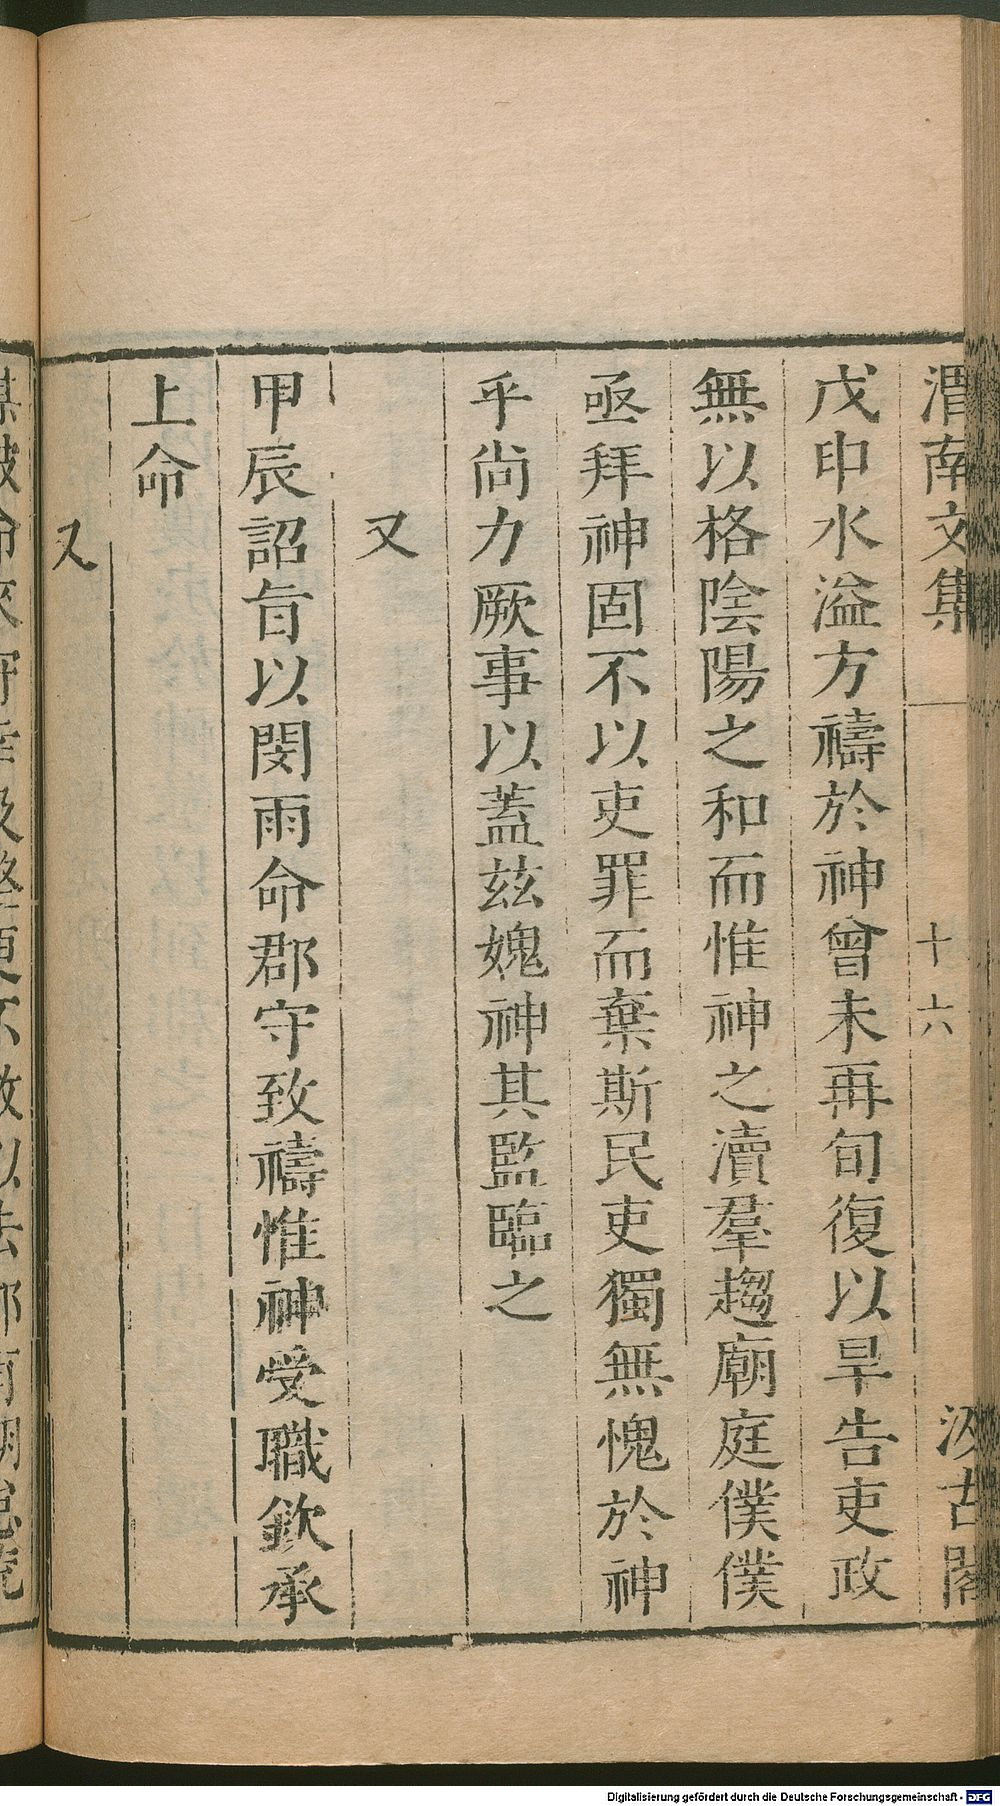 渭南文集
十六
汲古閣
戊申水溢方禱於神曾未再旬復以旱告吏政
無以格陰陽之和而惟神之瀆羣趨廟庭僕僕
亟拜神固不以吏罪而棄斯民吏獨無愧於神
乎尚力厥事以蓋玆媿神其監臨之
又
甲辰詔旨以閔雨命郡守致禱惟神受職欽承
上命
又
Digitalisierung gefördert durch die Deutsche Forschungsgemeinschaft - DFG